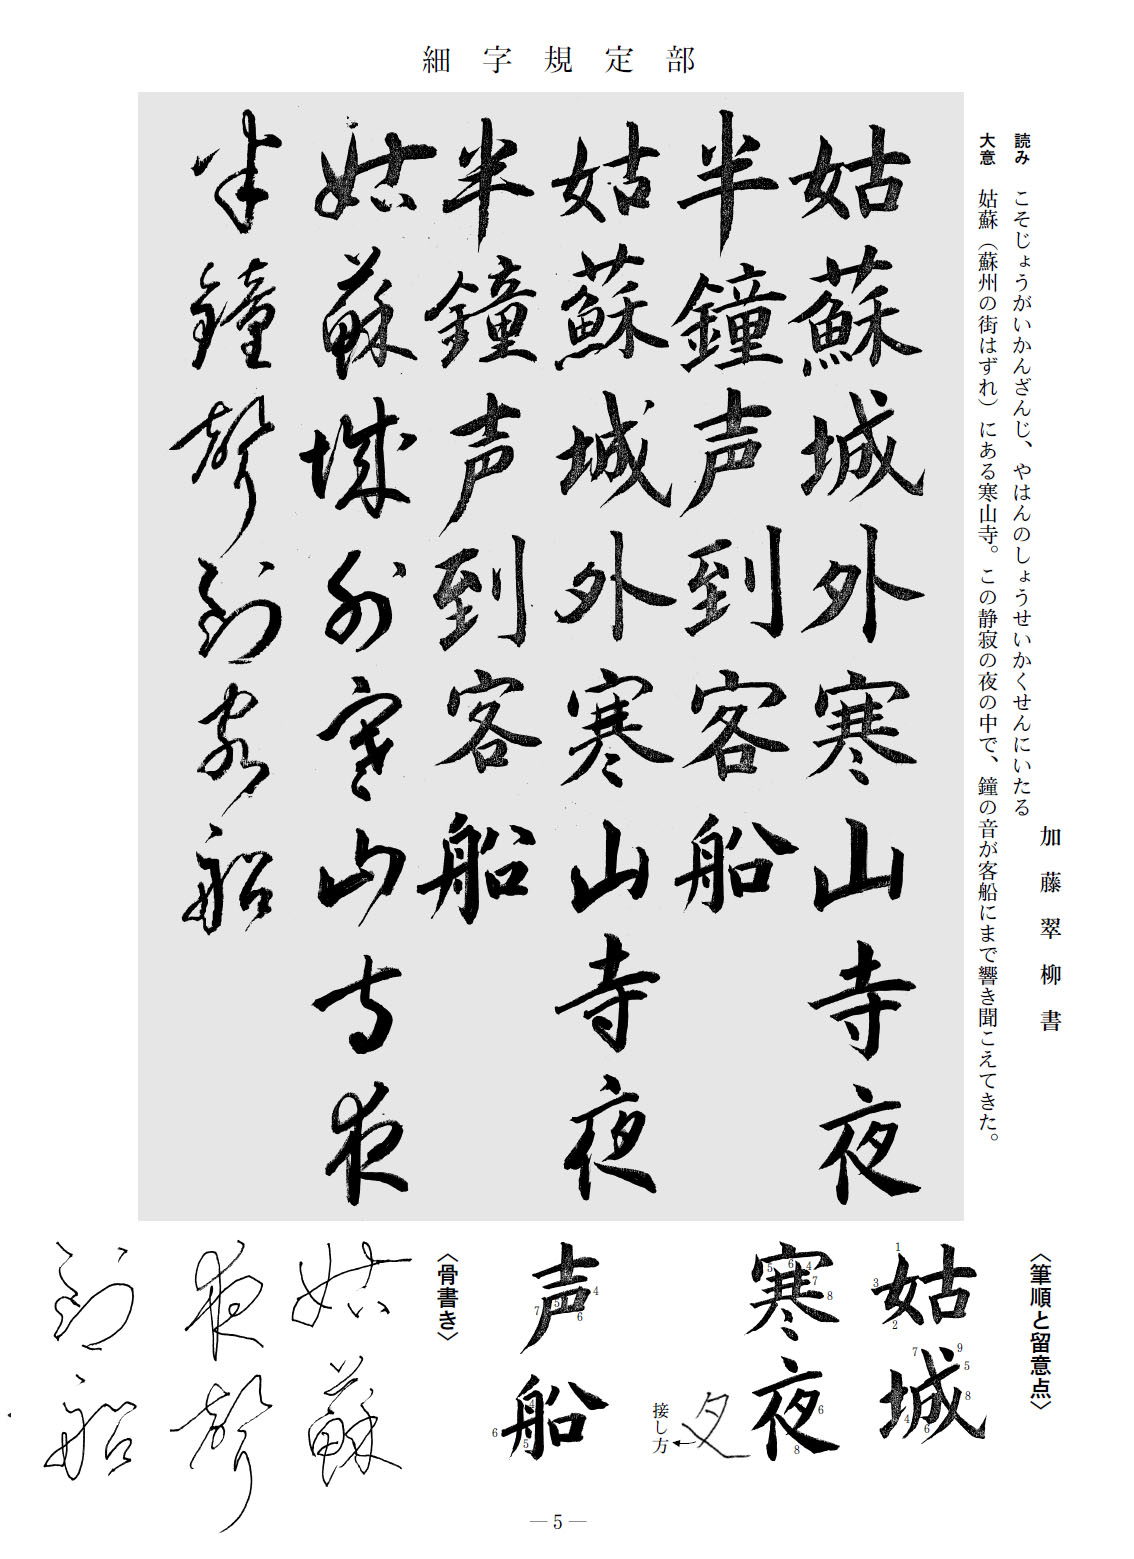 細字規定部
加藤翠柳書
読み　こそじょうがいかんざんじ、やはんのしょうせいかくせんにいたる
大意　姑蘇（蘇州の街はずれ）にある寒山寺。この静寂の夜の中で、鐘の音が客船にまで響き聞こえてきた。
姑蘇城外寒山寺夜
半鐘声到客船
姑蘇城外寒山寺夜
半鐘声到客船
姑蘇城外寒山寺夜
半鐘聲到客船
〈筆順と留意点〉
姑城
1
3
2
7
9
5
8
4
6
寒夜
5
6
4
7
8
6
8
接し方
声船
4
5
7
6
4
6
5
〈骨書き〉
姑蘇
夜聲
到船
— 5 —